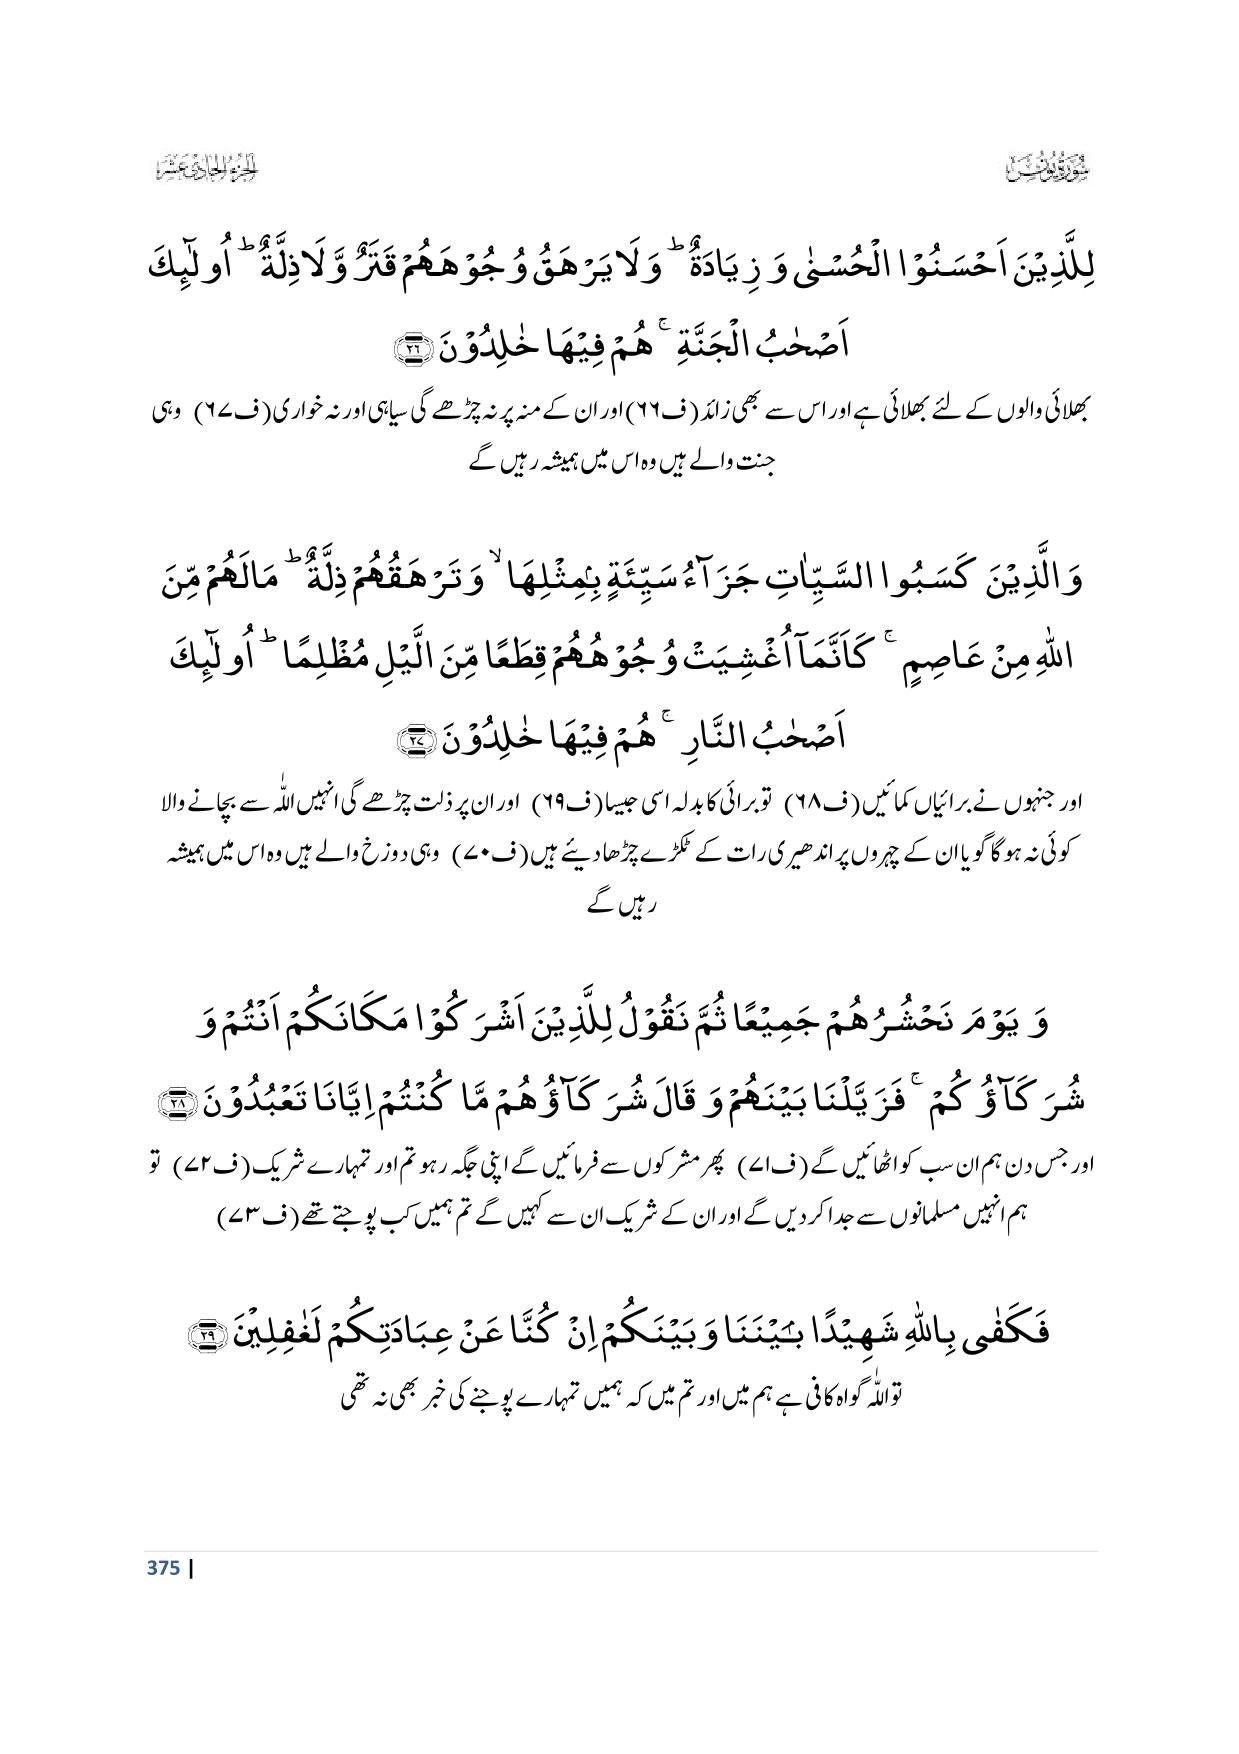 سُوْرَةُ يُوْنُس
الجزء الحادی عشر
لِلَّذِیْنَ اَحْسَنُوا الْحُسْنٰى وَ زِیَادَةٌ ؕ وَ لَا یَرْهَقُ وُجُوْهَهُمْ قَتَرٌ وَّ لَا ذِلَّةٌ ؕ اُولٰٓىٕكَ
اَصْحٰبُ الْجَنَّةِ ۚ هُمْ فِیْهَا خٰلِدُوْنَ ﴿۲۶﴾
بھلائی والوں کے لئے بھلائی ہے اور اس سے بھی زائد (ف۶۶) اور ان کے منہ پر نہ چڑھے گی سیاہی اور نہ خواری (ف۶۷) وہی
جنت والے ہیں وہ اس میں ہمیشہ رہیں گے
وَ الَّذِیْنَ كَسَبُوا السَّیِّاٰتِ جَزَآءُ سَیِّئَةٍۭ بِمِثْلِهَا ۙ وَ تَرْهَقُهُمْ ذِلَّةٌ ؕ مَا لَهُمْ مِّنَ
اللّٰهِ مِنْ عَاصِمٍ ۚ كَاَنَّمَاۤ اُغْشِیَتْ وُجُوْهُهُمْ قِطَعًا مِّنَ الَّیْلِ مُظْلِمًا ؕ اُولٰٓىٕكَ
اَصْحٰبُ النَّارِ ۚ هُمْ فِیْهَا خٰلِدُوْنَ ﴿۲۷﴾
اور جنہوں نے برائیاں کمائیں (ف۶۸) تو برائی کا بدلہ اسی جیسا (ف۶۹) اور ان پر ذلت چڑھے گی انہیں اللّٰہ سے بچانے والا
کوئی نہ ہوگا گویا ان کے چہروں پر اندھیری رات کے ٹکڑے چڑھا دیئے ہیں (ف۷۰) وہی دوزخ والے ہیں وہ اس میں ہمیشہ
رہیں گے
وَ یَوْمَ نَحْشُرُهُمْ جَمِیْعًا ثُمَّ نَقُوْلُ لِلَّذِیْنَ اَشْرَكُوْا مَكَانَكُمْ اَنْتُمْ وَ
شُرَكَآؤُكُمْ ۚ فَزَیَّلْنَا بَیْنَهُمْ وَ قَالَ شُرَكَآؤُهُمْ مَّا كُنْتُمْ اِیَّانَا تَعْبُدُوْنَ ﴿۲۸﴾
اور جس دن ہم ان سب کو اٹھائیں گے (ف۷۱) پھر مشرکوں سے فرمائیں گے اپنی جگہ رہو تم اور تمہارے شریک (ف۷۲) تو
ہم انہیں مسلمانوں سے جدا کردیں گے اور ان کے شریک ان سے کہیں گے تم ہمیں کب پوجتے تھے (ف۷۳)
فَكَفٰى بِاللّٰهِ شَهِیْدًۢا بَیْنَنَا وَ بَیْنَكُمْ اِنْ كُنَّا عَنْ عِبَادَتِكُمْ لَغٰفِلِیْنَ ﴿۲۹﴾
تو اللّٰہ گواہ کافی ہے ہم میں اور تم میں کہ ہمیں تمہارے پوجنے کی خبر بھی نہ تھی
375 |